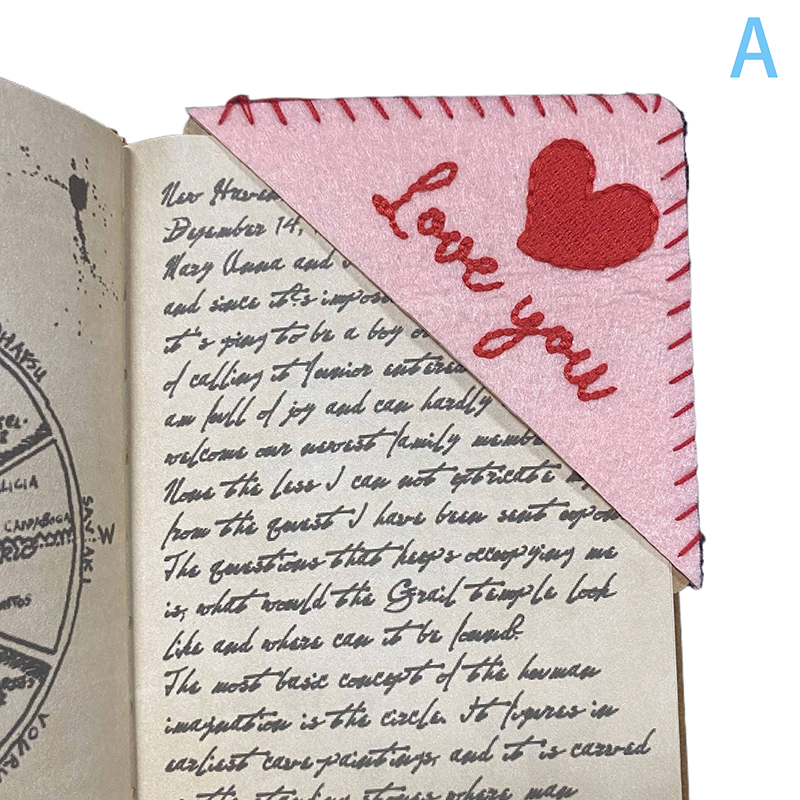 A
Love
you
New Haven
December 14,
Mary Anna and
and since it's impos
it's going to be a boy
of calling it Junior entered
am full of joy and can hardly
welcome our newest family membe
None the less I can not extricate
from the quest I have been sent upon
The questions that keeps occupying me
is, what would the Grail temple look
like and where can it be found.
The most basic concept of the human
imagination is the circle. It figures in
earliest cave paintings, and it is carved
the standing stones where man
SAVIAKI
W